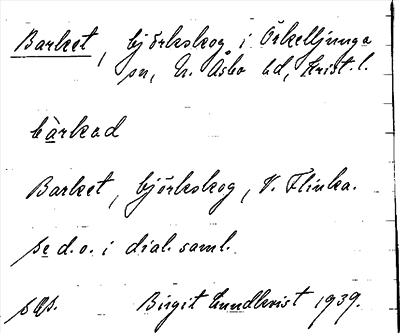 Barket, björkskog i Örkelljunga
sn, N. Åsbo hd, Krist. l.
bàrkad
Barket, björkskog, V. Flinka.
se d.o. i dial. saml.
Birgit Lundkvist 1939.